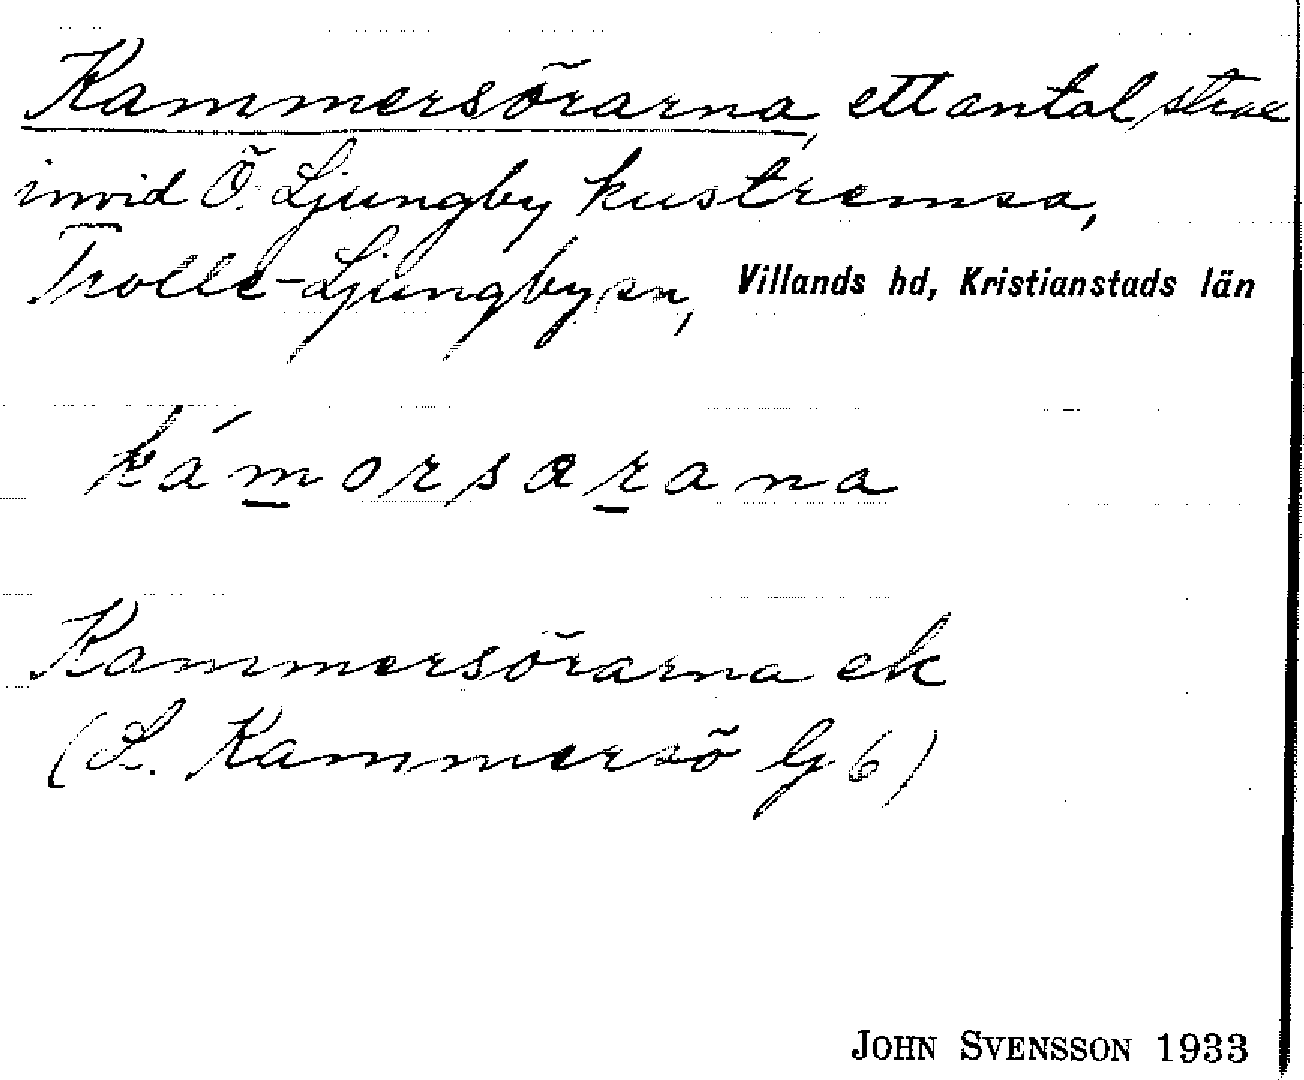 Kammersörarna, ett antal
invid Ö. Ljungby kustremsa,
Trolle-Ljungby sn, Villands hd, Kristianstads län
kámorsarana
Kammersörarna ek
(L. Kammersö G 6)
JOHN SVENSSON 1933